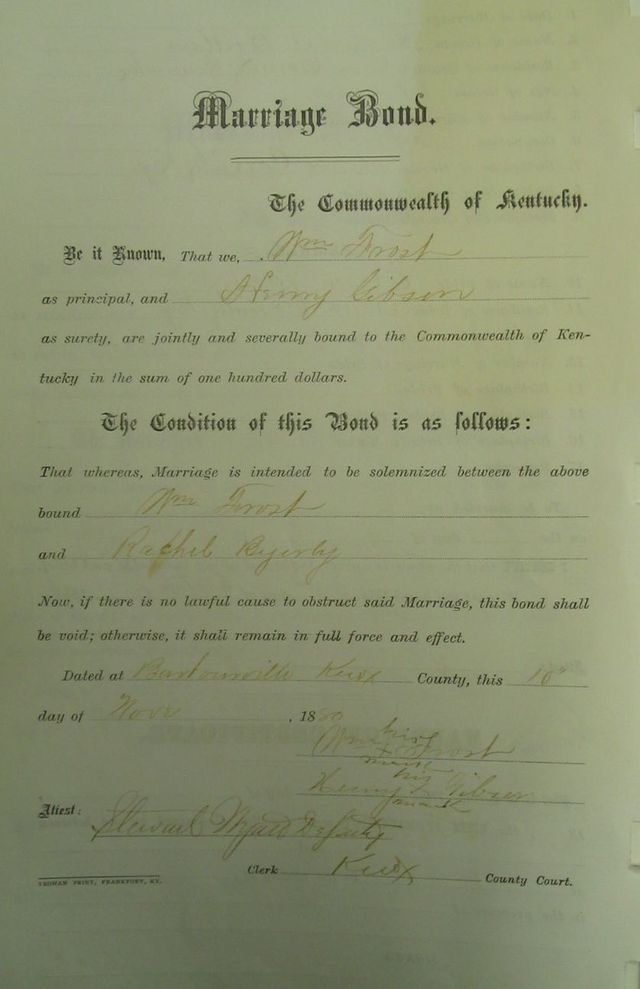 Marriage Bond.
The Commonwealth of Kentucky.
Be it Known, That we, Wm Frost
as principal, and Henry Gibson
as surety, are jointly and severally bound to the Commonwealth of Ken-
tucky in the sum of one hundred dollars.
The Condition of this Bond is as follows:
That whereas, Marriage is intended to be solemnized between the above
bound Wm Frost
and Rachel Byerly
Now, if there is no lawful cause to obstruct said Marriage, this bond shall
be void; otherwise, it shall remain in full force and effect.
Dated at Barbourville Knox County, this 10"
day of Novr, 1880
his
Wm X Frost
mark
his
Henry X Gibson
mark
Attest:
Deputy
Clerk Knox County Court.
YEOMAN PRINT, FRANKFORT, KY.